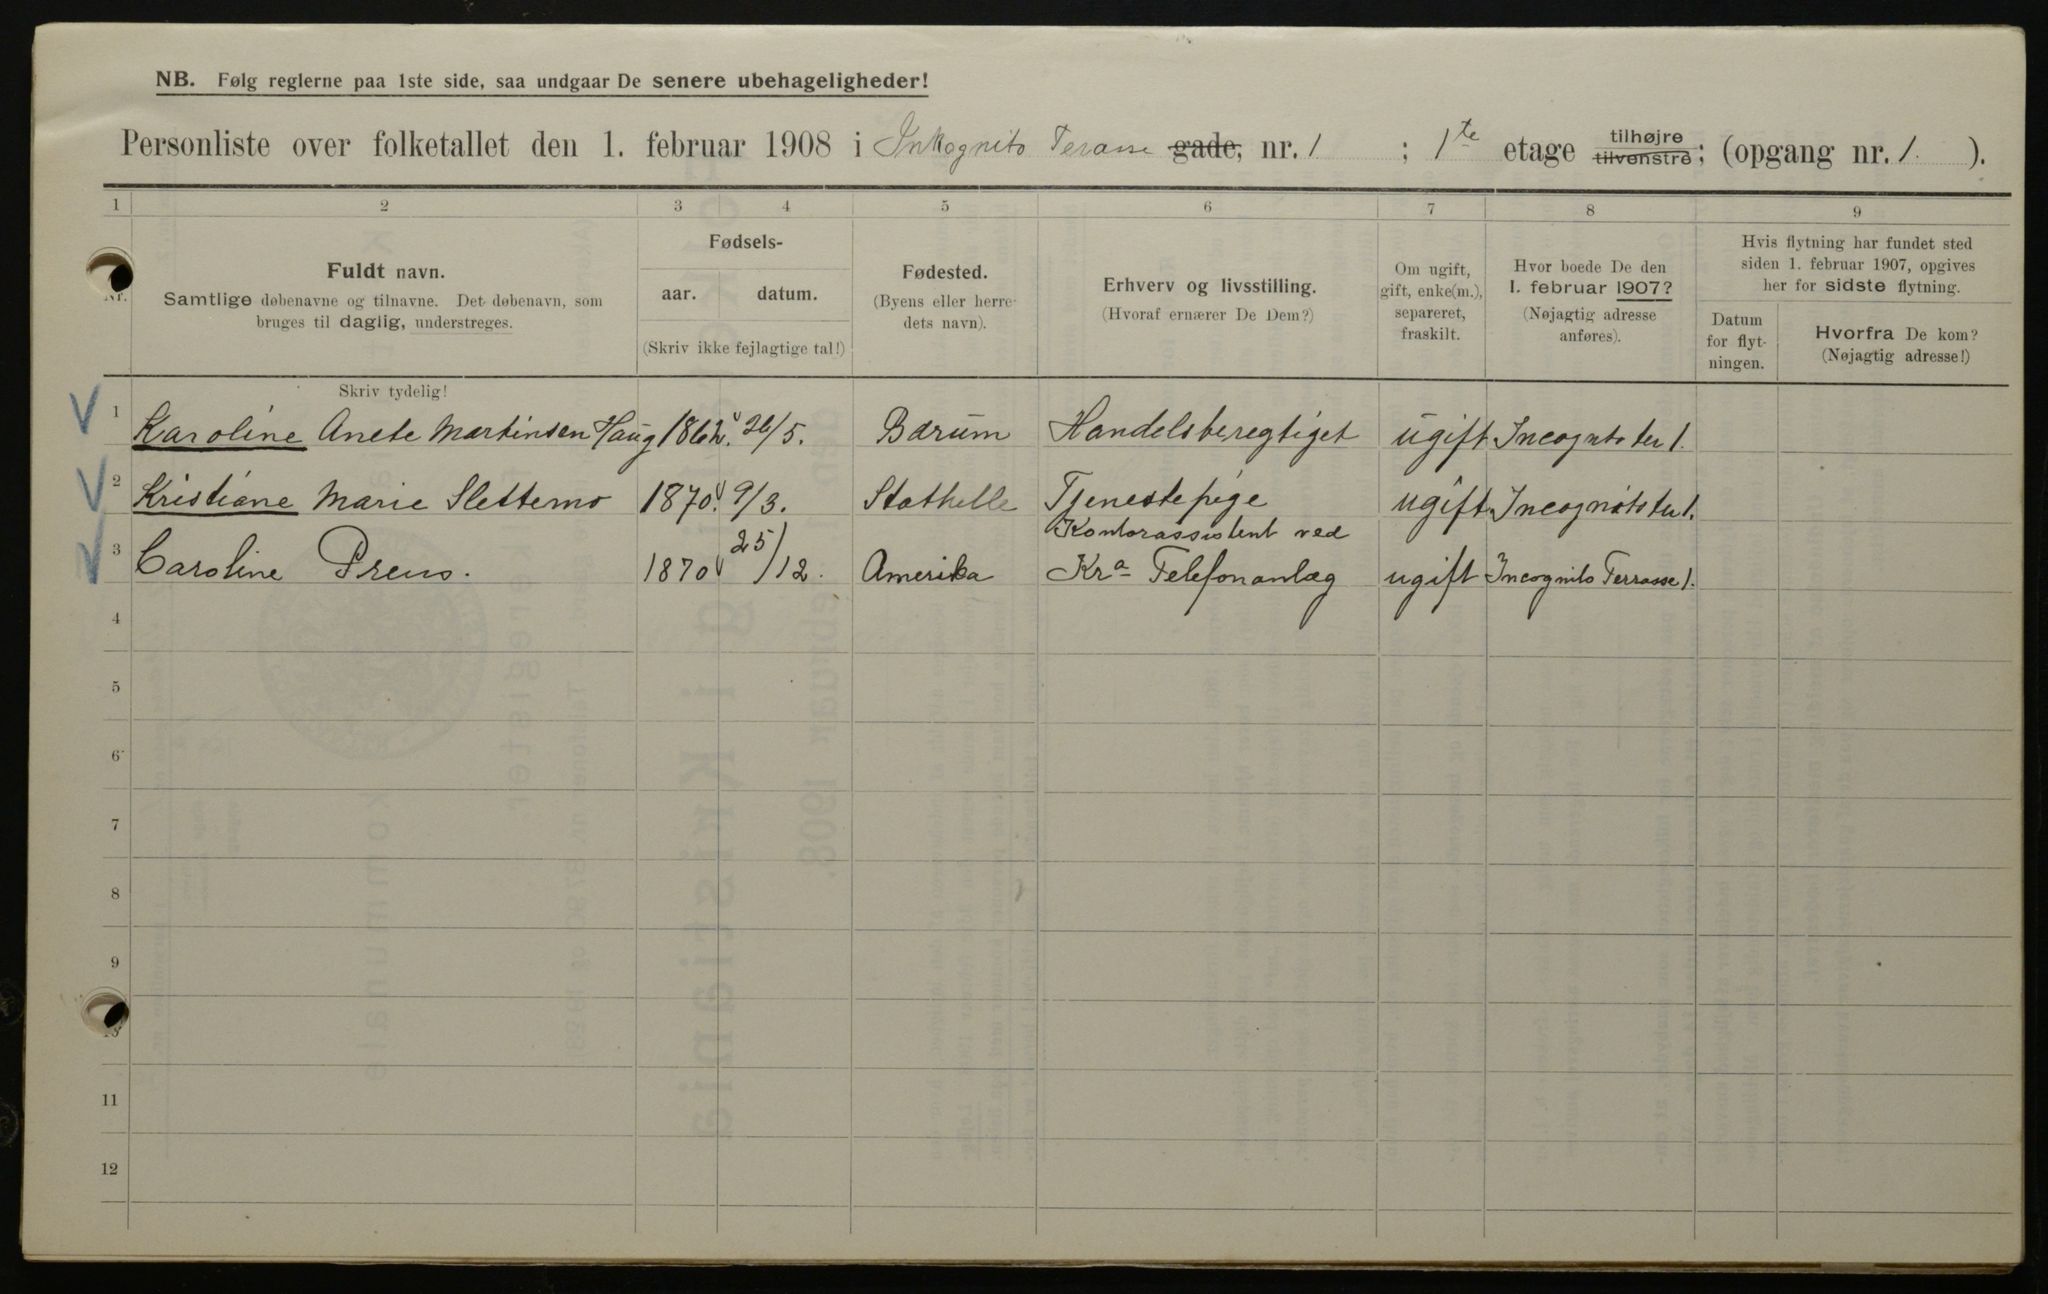 NB. Følg reglerne paa 1ste side, saa undgaar De senere ubehageligheder!
Personliste over folketallet den 1. februar 1908 i Inkognito Terasse gade, nr. 1 ; 1te etage tilhøjre tilvenstre; (opgang nr. 1. ).
1 2 3 4 5 6 7 8 9
Nr.
Fuldt navn.
Samtlige døbenavne og tilnavne. Det døbenavn, som
bruges til daglig, understreges.
Skriv tydelig!
Fødsels-
aar. datum.
(Skriv ikke fejlagtige tal!)
Fødested.
(Byens eller herre-
dets navn).
Erhverv og livsstilling.
(Hvoraf ernærer De Dem?)
Om ugift,
gift, enke(m.),
separeret,
fraskilt.
Hvor boede De den
1. februar 1907?
(Nøjagtig adresse
anføres).
Hvis flytning har fundet sted
siden 1. februar 1907, opgives
her for sidste flytning.
Datum
for flyt-
ningen.
Hvorfra De kom?
(Nøjagtig adresse!)
1 Karoline Anete Martinsen Haug 1862. 26/5. Bærum Handelsberegtiget ugift Incognito ter 1.
2 Kristiane Marie Slettemo 1870. 9/3. Stathelle Tjenestepige ugift Incognito ter 1.
Kontorassistent ved
3 Caroline Preus. 1870 25/12. Amerika Kra Telefonanlæg ugift Incognito Terrasse 1.
4
5
6
7
8
9
11
12